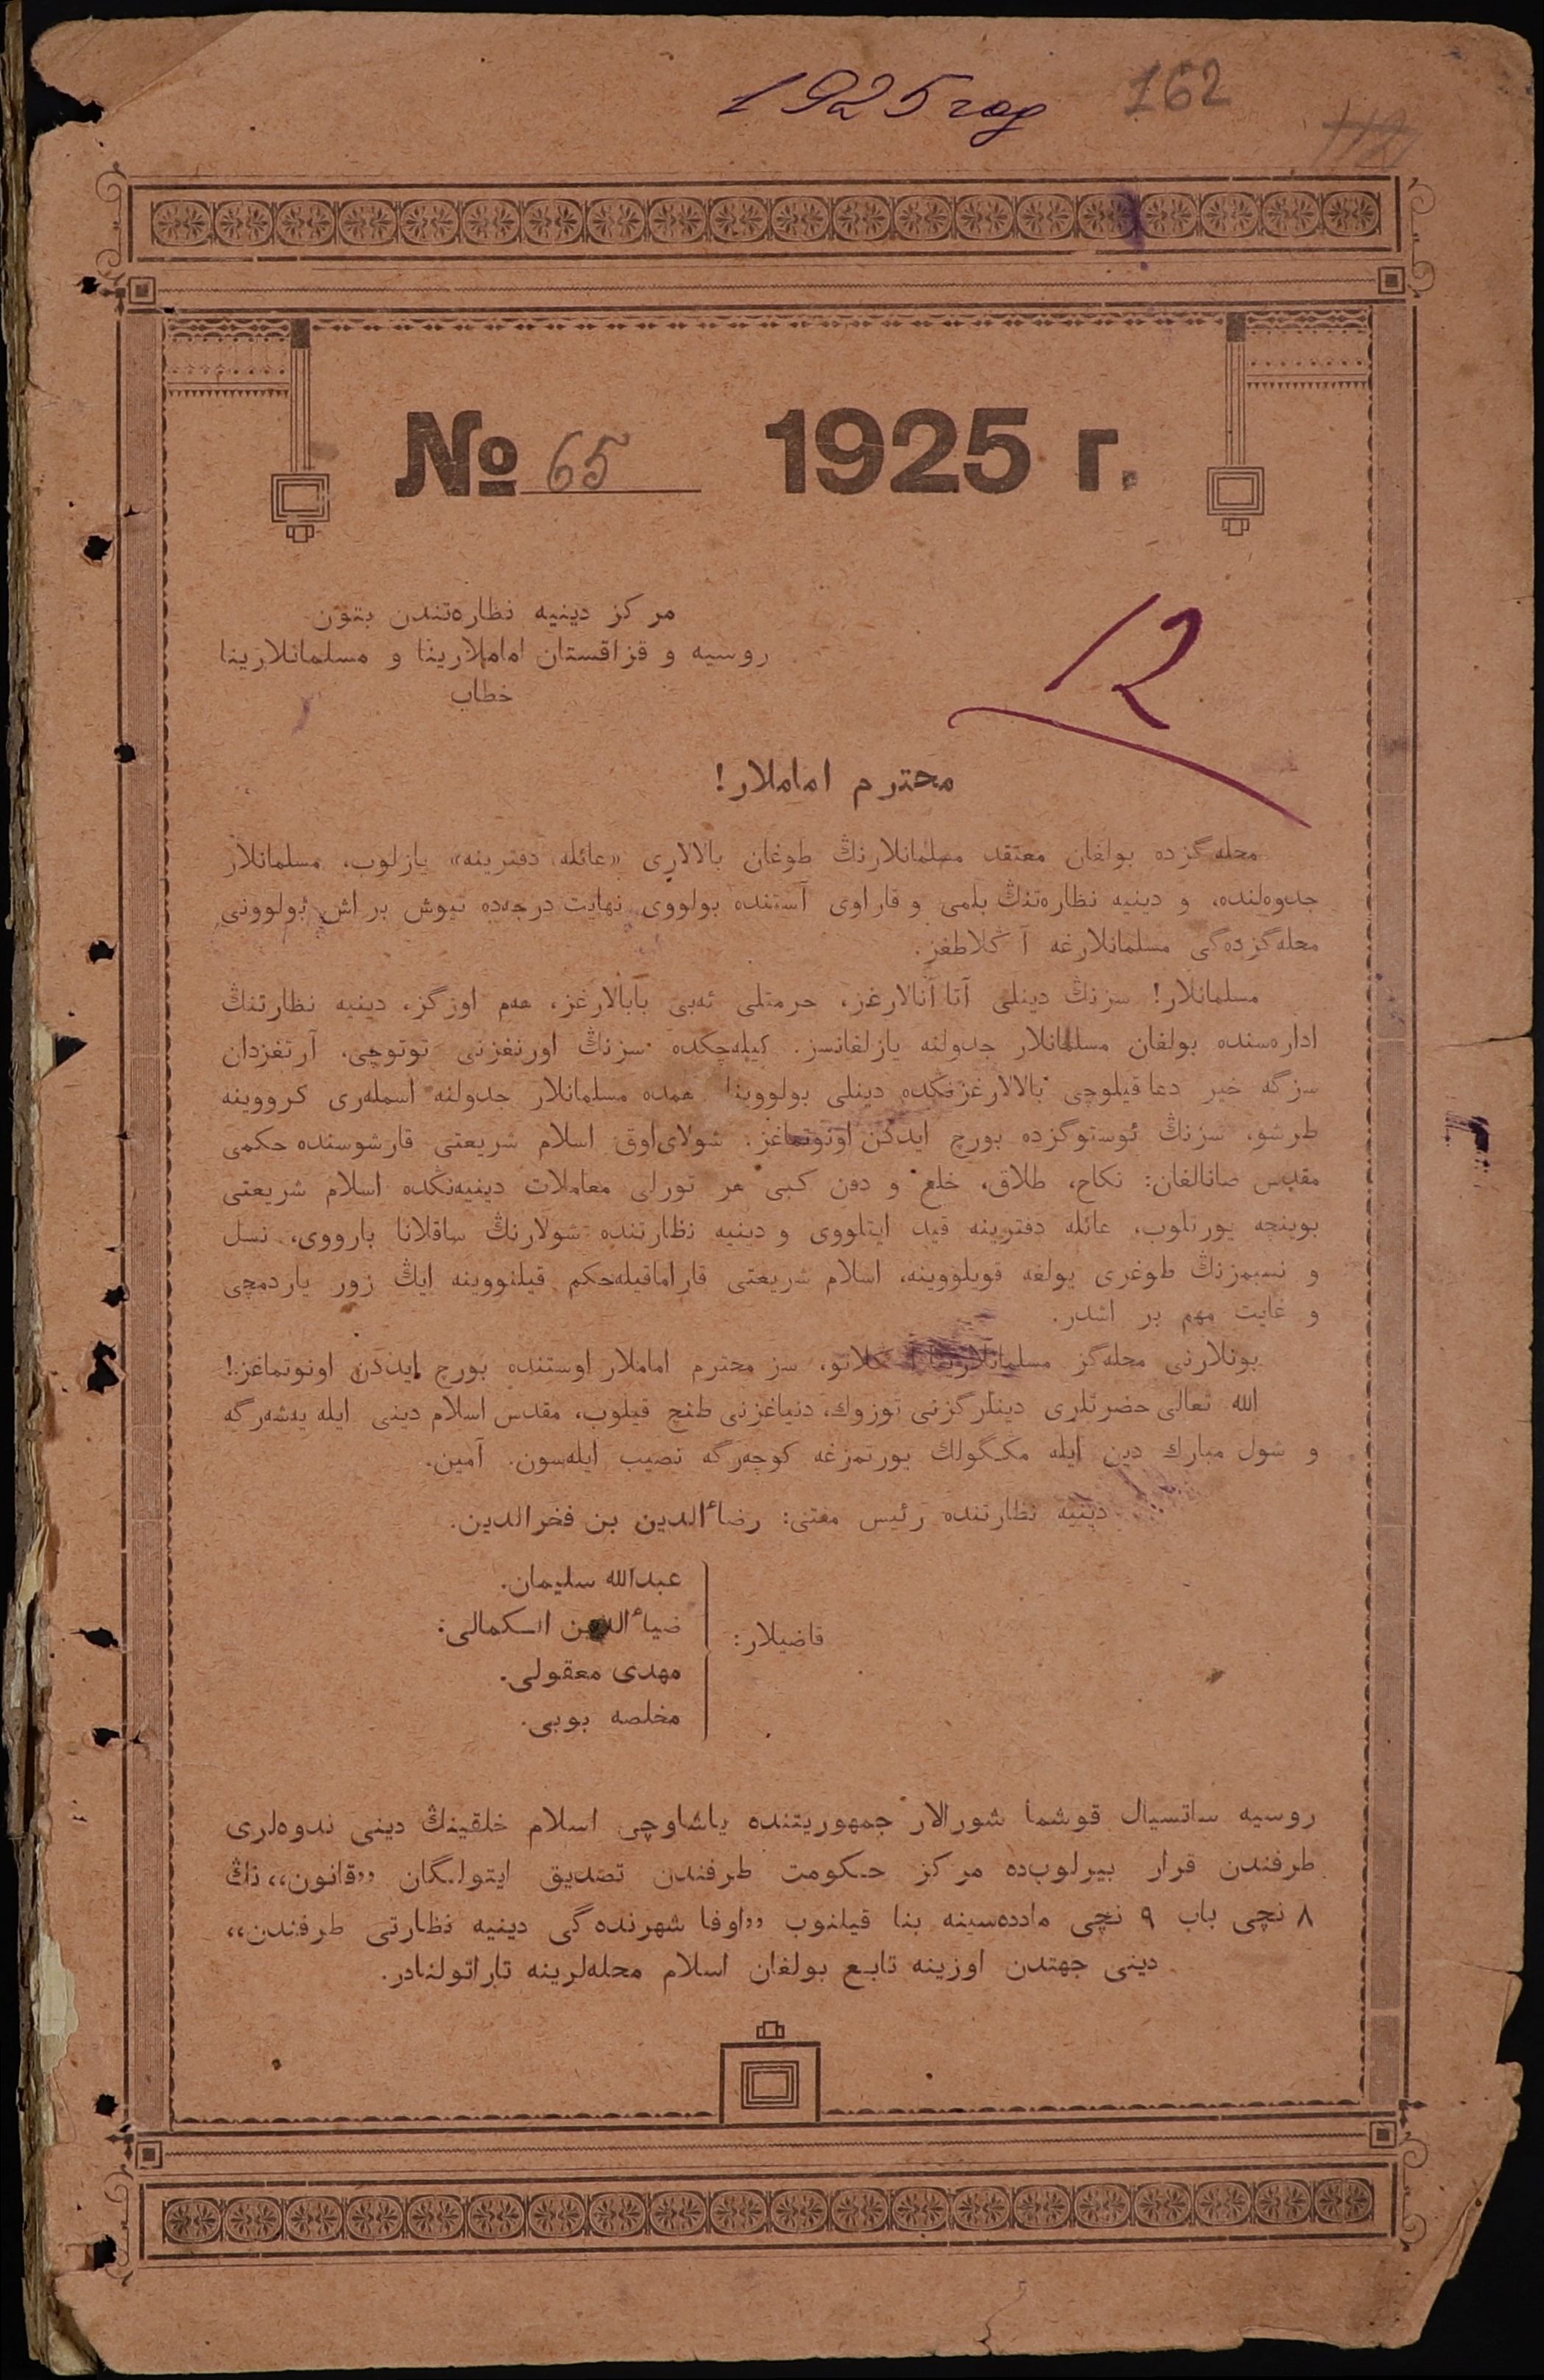 1925 год
162
112
№ 65 1925 г.
مركز دينيه نظاره‌تندن بتون
روسيه و قزاقستان امام‌لارينا و مسلمانلارينا
خطاب
12
محترم امام‌لار!
محله‌گزده بولغان معتقد مسلمانلارنڭ طوغان بالالارى «عائله دفترينه» يازلوب، مسلمانلار
جدوه‌لنده، و دينيه نظاره‌تنڭ بلمى و قاراوى آستنده بولووى نهايت درجه‌ده تيوش بر اش بولوونى
محله‌گزده‌گى مسلمانلارغه آڭلاطغز.
مسلمانلار! سزنڭ دينلى آتا آنالارغز، حرمتلى ئه‌بى بابالارغز، هم اوزگز، دينيه نظارتنڭ
اداره‌سنده بولغان مسلمانلار جدولنه يازلغانسز. كيله‌چكده سزنڭ اورنغزنى توتوچى، آرتغزدان
سزگه خير دعا قيلوچى بالالارغزنڭده دينلى بولووينا همده مسلمانلار جدولنه اسمله‌رى كرووينه
طرشو، سزنڭ ئوستوگزده بورچ ايدكن اونوتماغز. شولاى‌اوق اسلام شريعتى قارشوسنده حكمى
مقدس صانالغان: نكاح، طلاق، خلع و دفن كبى هر تورلى معاملات دينيه‌نڭده اسلام شريعتى
بوينچه يورتلوب، عائله دفترينه قيد ايتلووى و دينيه نظارتنده شولارنڭ ساقلانا بارووى، نسل
و نسبمزنڭ طوغرى يولغه قويلووينه، اسلام شريعتى قاراماقيله‌حكم قيلنووينه ايڭ زور ياردمچى
و غايت مهم بر اشدر.
بونلارنى محله‌گز مسلمانلارينا آڭلاتو، سز محترم امام‌لار اوستنده بورچ ايدكن اونوتماغز!
الله تعالى حضرتلرى دينلرگزنى توزوك، دنياغزنى طنچ قيلوب، مقدس اسلام دينى ايله يه‌شه‌رگه
و شول مبارك دين ايله مڭگولك يورتمزغه كوچه‌رگه نصيب ايله‌سون. آمين.
دينيه نظارتنده رئيس مفتى: رضاءالدين بن فخرالدين.
عبدالله سليمان.
ضياءالدين الكمالى.
قاضيلار:
مهدى معقولى.
مخلصه بوبى.
روسيه ساتسيال قوشما شورالار جمهوريتنده ياشاوچى اسلام خلقينڭ دينى ندوه‌لرى
طرفندن قرار بيرلوب‌ده مركز حكومت طرفندن تصديق ايتولگان ,,قانون،،نڭ
٨ نچى باب ٩ نچى ماددەسينه بنا قيلنوب ,,اوفا شهرنده‌گى دينيه نظارتى طرفندن،،
دينى جهتدن اوزينه تابع بولغان اسلام محله‌لرينه تاراتولنادر.